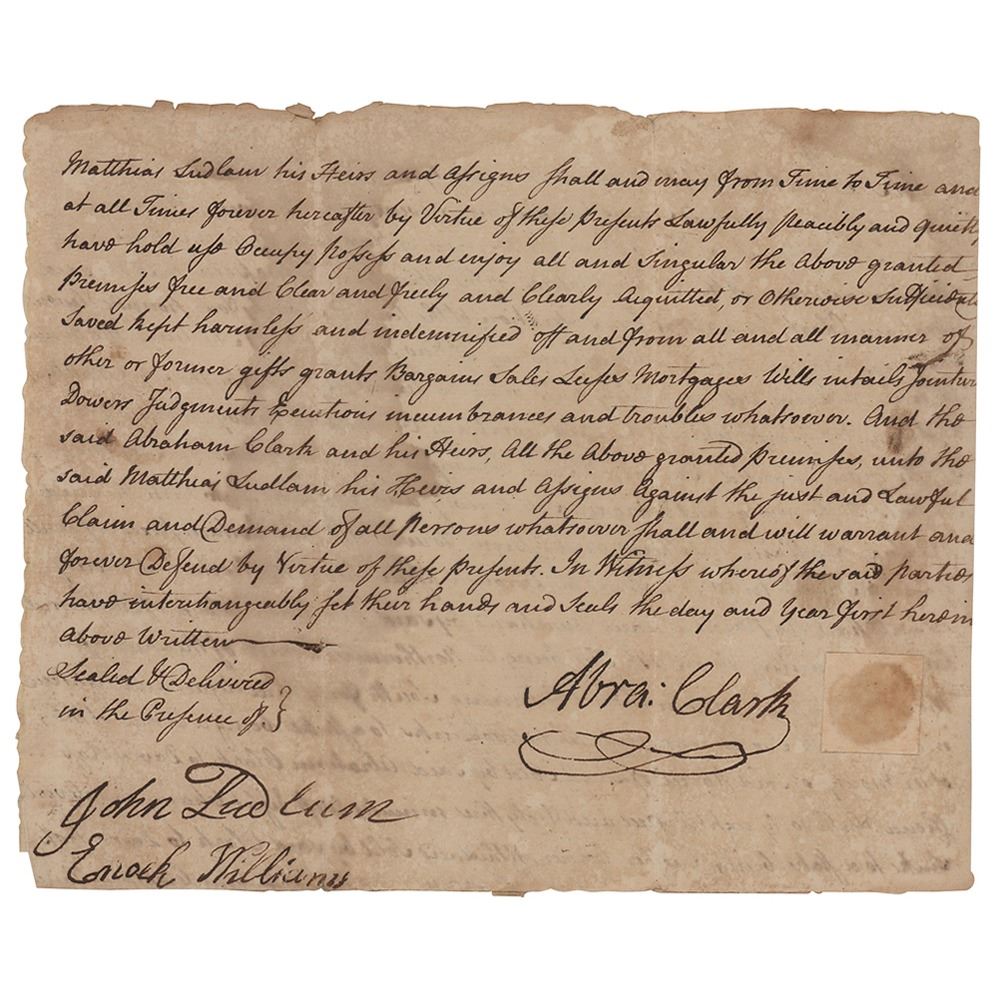 Matthias Ludlam his Heirs and Assigns shall and may from Time to Time and
at all Times forever hereafter by Virtue of these Presents Lawfully Peacibly and Quietly
have hold use Occupy Possess and enjoy all and Singular the Above granted
Premises free and Clear and freely and Clearly Acquitted, or Otherwise Sufficiently
Saved kept harmless and indemnified off and from all and all manner of
other or former gifts grants Bargains Sales Leases Mortgages Wills intails Jointur
Dowers Judgments Executions incumbrances and troubles whatsoever. And the
said Abraham Clark and his Heirs, All the Above granted Premises, unto the
said Matthias Ludlam his Heirs and Assigns Against the just and Lawful
Claim and Demand of all Persons whatsoever shall and will warrant and
forever Defend by Virtue of these Presents. In Witness whereof the said parties
have interchangeably set their hands and Seals the day and Year first herein
above Written
Sealed & Delivered
in the Presence of
Abra: Clark
John Ludlum
Enoch Williams